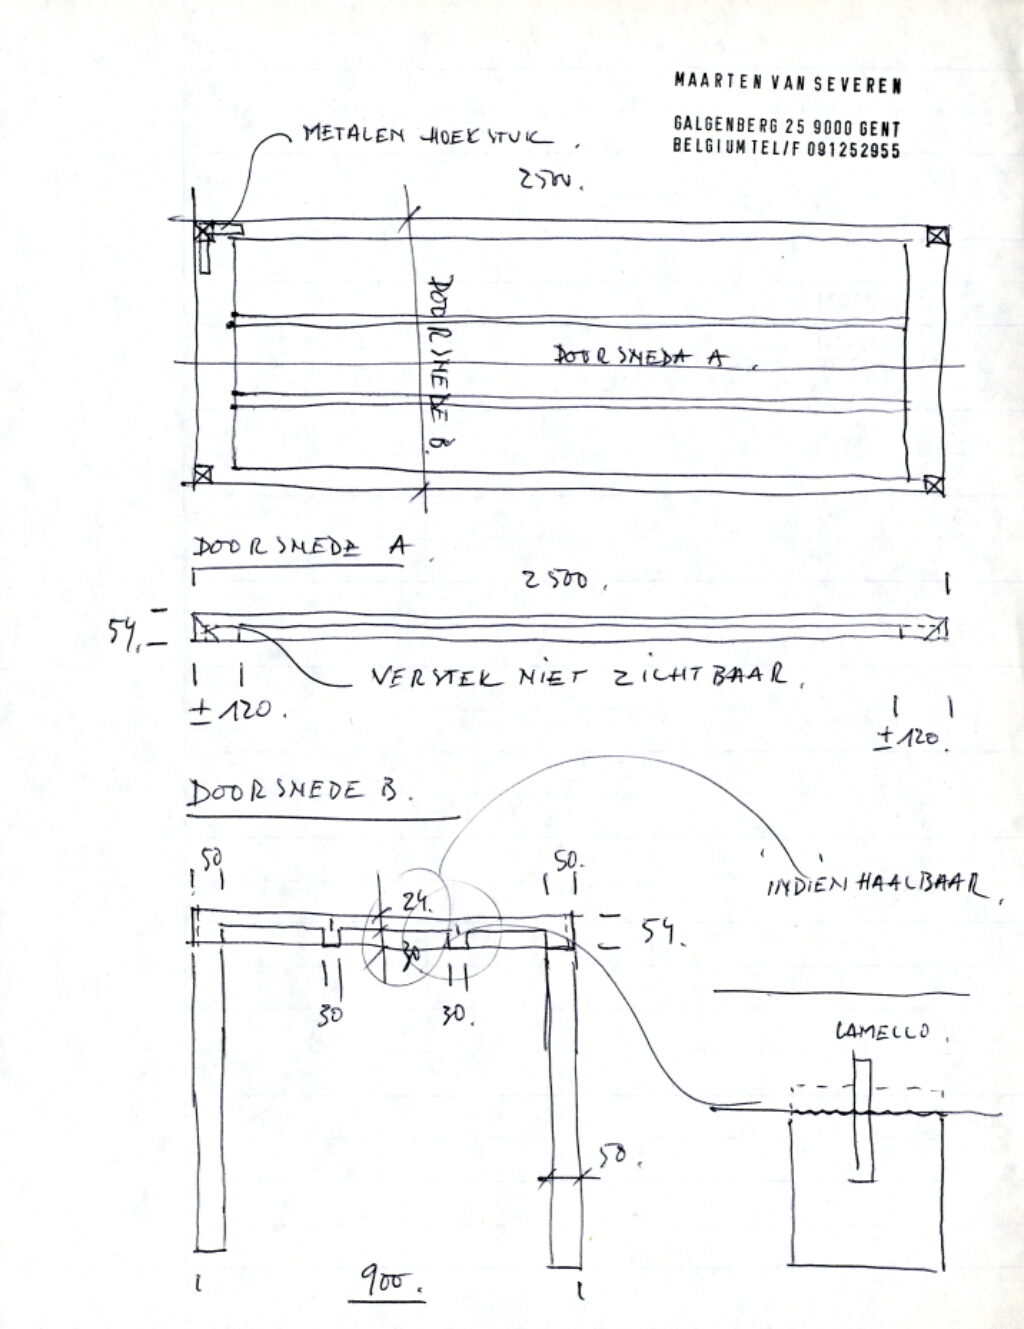 MAARTEN VAN SEVEREN
GALGENBERG 25 9000 GENT
BELGIUM TEL/F 091252955
METALEN HOEKSTUK.
2500.
DOORSNEDE B.
DOORSNEDA A.
DOORSNEDE A.
2500.
54.
VERSTEK NIET ZICHTBAAR.
± 120.
± 120.
DOORSNEDE B.
50
50.
INDIEN HAALBAAR.
24.
54.
30
30
30.
LAMELLO.
50.
900.